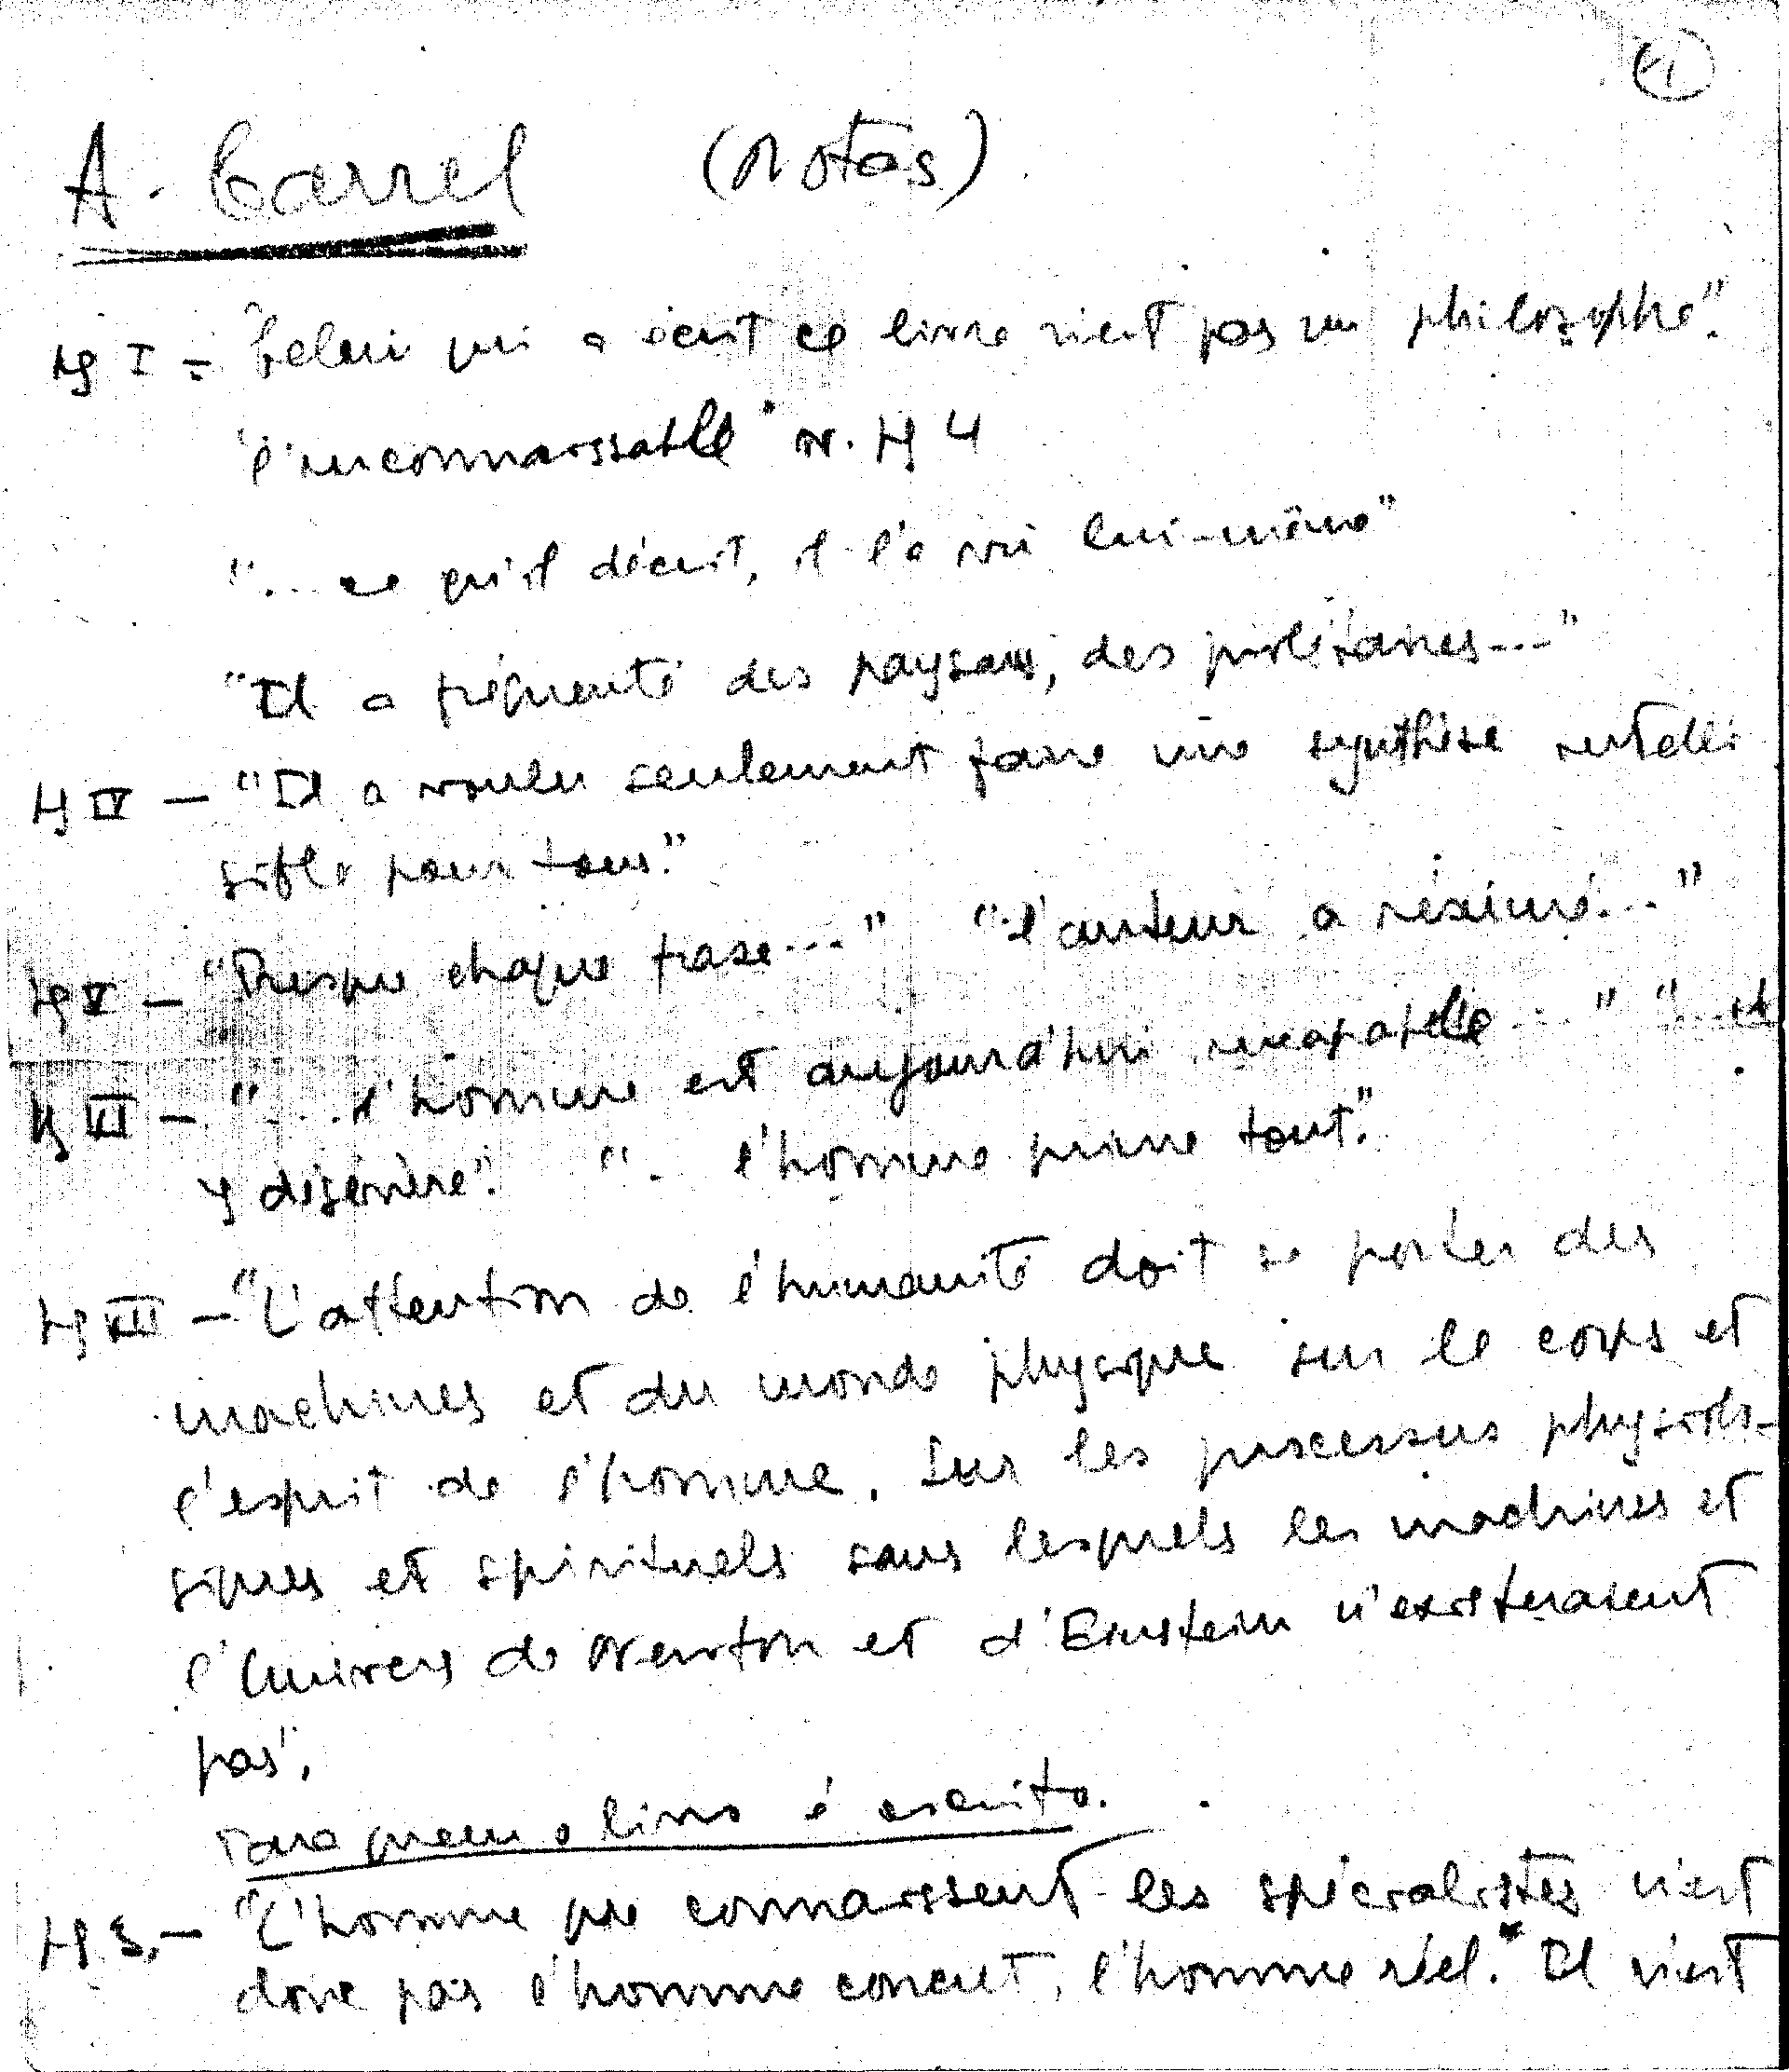 A. Carrel (Notas)
Pg I = "Celui qui a écrit ce livre n'est pas un philosophe".
"l'inconnaissable" Pg 4
"... ce qu'il décrit, il l'a vu lui-même"
"Il a fréquenté des paysans, des prolétaires..."
Pg IV — "Il a voulu seulement faire une synthèse intelli
sible pour tous."
Pg V — "Presque chaque frase..." "l'auteur a résumé..."
Pg VI — "... l'homme est aujourd'hui incapable..." "... il
y dégénère". "... l'homme prime tout".
Pg VII — "L'attention de l'humanité doit se porter des
machines et du monde physique sur le corps et
l'esprit de l'homme. Sur les processus physiolo-
giques et spirituels sans lesquels les machines et
l'Univers de Newton et d'Einstein n'existeraient
pas".
Para quem o livro é escrito.
Pg 3.— "L'homme que connaissent les spécialistes n'est
donc pas l'homme concret, l'homme réel. Il n'est